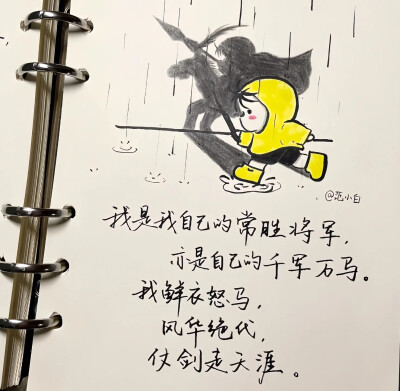 @范小白
我是我自己的常胜将军，
亦是自己的千军万马。
我鲜衣怒马，
风华绝代，
仗剑走天涯。